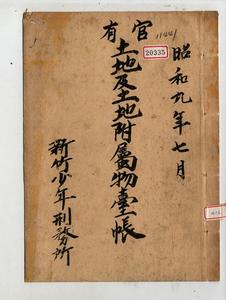 昭和九年七月
官有
土地及土地附属物臺帳
新竹少年刑務所
20335